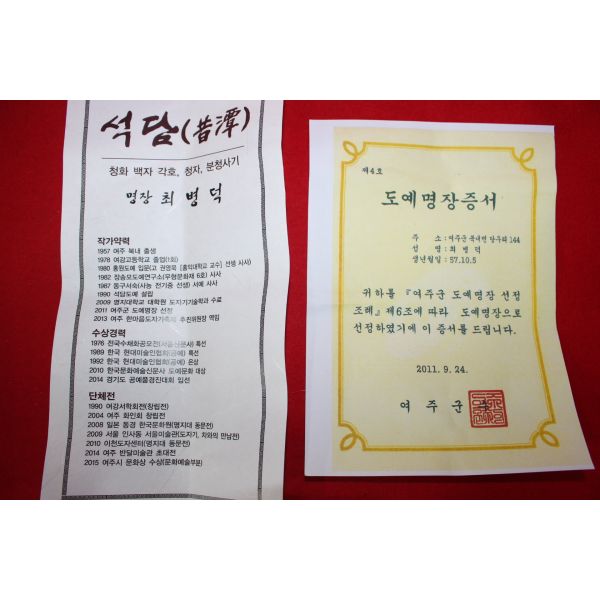 석담(昔潭)
청화 백자 각호, 청자, 분청사기
명장 최병덕
작가약력
1957 여주 북내 출생
1978 여강고등학교 졸업(1회)
1980 홍원도예 입문(고 권영묵 [홍익대학교 교수] 선생 사사)
1982 장송모도예연구소(무형문화재 6호) 사사
1987 동구서숙(사능 전기중 선생) 서예 사사
1990 석담도예 설립
2009 명지대학교 대학원 도자기기술학과 수료
2011 여주군 도예명장 선정
2013 여주 한마음도자기축제 추진위원장 역임
수상경력
1976 전국수채화공모전(서울신문사) 특선
1989 한국 현대미술인협회(공예) 특선
1992 한국 현대미술인협회(공예) 은상
2010 한국문화예술신문사 도예문화 대상
2014 경기도 공예품경진대회 입선
단체전
1990 여강서학회전(창립전)
2004 여주 화인회 창립전
2008 일본 동경 한국문화원(명지대 동문전)
2009 서울 인사동 서울미술관(도자기, 차와의 만남전)
2010 이천도자센터(명지대 동문전)
2014 여주 반달미술관 초대전
2015 여주시 문화상 수상(문화예술부문)
제4호
도예명장증서
주 소 : 여주군 북내면 당우리 144
성 명 : 최 병 덕
생년월일 : 57.10.5
위하를 『여주군 도예명장 선정
조례』 제6조에 따라 도예명장으로
선정하였기에 이 증서를 드립니다.
2011. 9. 24.
여 주 군 수